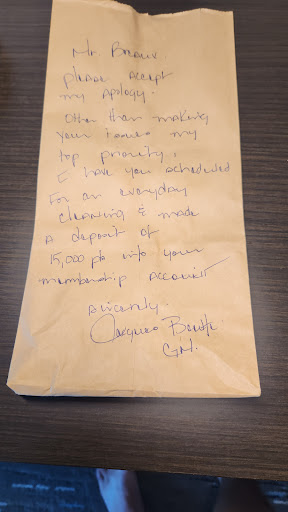 Mr.
please accept
my Apology.
Other than making
your issues my
top priority,
I have you scheduled
For an everyday
cleaning & made
A deposit of
15,000 pts into your
membership Account
Sincerely.
GM.